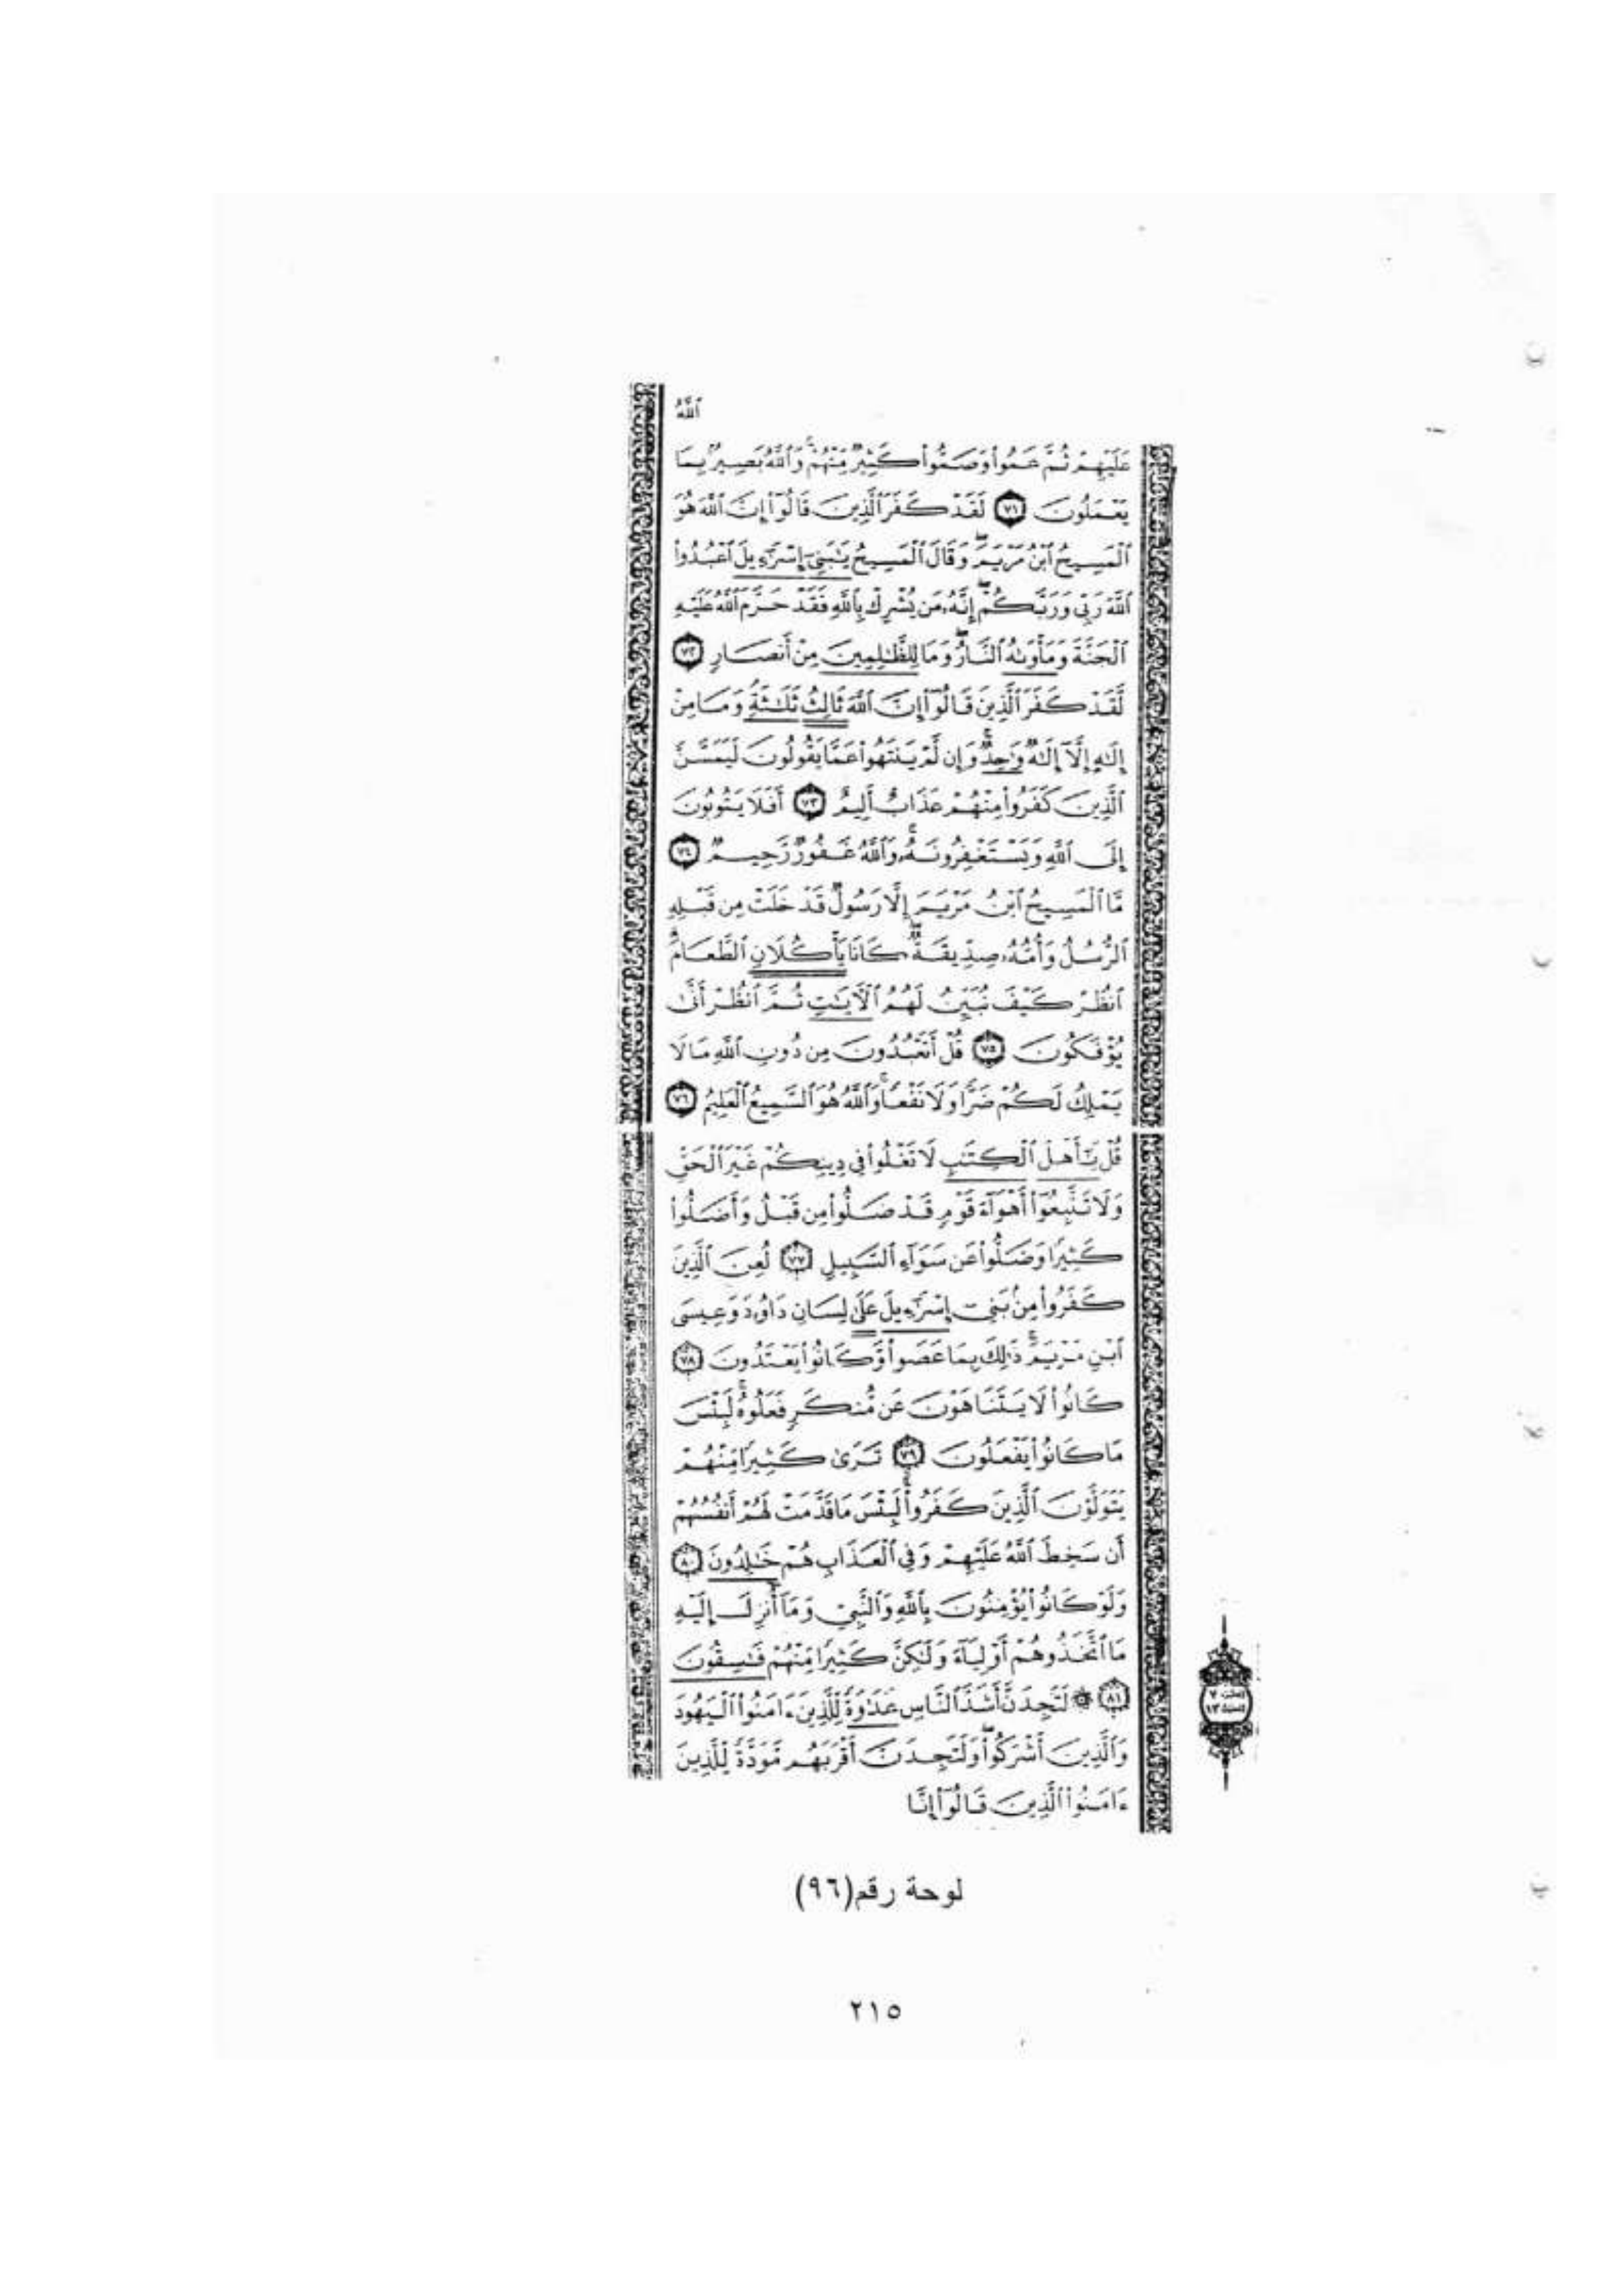 ٱللَّهُ
عَلَيْهِمْ ثُمَّ عَمُواْ وَصَمُّواْ كَثِيرٌ مِّنْهُمْ ۚ وَٱللَّهُ بَصِيرٌۢ بِمَا
يَعْمَلُونَ ٧١ لَقَدْ كَفَرَ ٱلَّذِينَ قَالُوٓاْ إِنَّ ٱللَّهَ هُوَ
ٱلْمَسِيحُ ٱبْنُ مَرْيَمَ ۖ وَقَالَ ٱلْمَسِيحُ يَٰبَنِىٓ إِسْرَٰٓءِيلَ ٱعْبُدُواْ
ٱللَّهَ رَبِّى وَرَبَّكُمْ ۖ إِنَّهُۥ مَن يُشْرِكْ بِٱللَّهِ فَقَدْ حَرَّمَ ٱللَّهُ عَلَيْهِ
ٱلْجَنَّةَ وَمَأْوَىٰهُ ٱلنَّارُ ۖ وَمَا لِلظَّٰلِمِينَ مِنْ أَنصَارٍ ٧٢
لَّقَدْ كَفَرَ ٱلَّذِينَ قَالُوٓاْ إِنَّ ٱللَّهَ ثَالِثُ ثَلَٰثَةٍ ۘ وَمَا مِنْ
إِلَٰهٍ إِلَّآ إِلَٰهٌ وَٰحِدٌ ۚ وَإِن لَّمْ يَنتَهُواْ عَمَّا يَقُولُونَ لَيَمَسَّنَّ
ٱلَّذِينَ كَفَرُواْ مِنْهُمْ عَذَابٌ أَلِيمٌ ٧٣ أَفَلَا يَتُوبُونَ
إِلَى ٱللَّهِ وَيَسْتَغْفِرُونَهُۥ ۚ وَٱللَّهُ غَفُورٌ رَّحِيمٌ ٧٤
مَّا ٱلْمَسِيحُ ٱبْنُ مَرْيَمَ إِلَّا رَسُولٌ قَدْ خَلَتْ مِن قَبْلِهِ
ٱلرُّسُلُ وَأُمُّهُۥ صِدِّيقَةٌ ۖ كَانَا يَأْكُلَانِ ٱلطَّعَامَ ۗ
ٱنظُرْ كَيْفَ نُبَيِّنُ لَهُمُ ٱلْءَايَٰتِ ثُمَّ ٱنظُرْ أَنَّىٰ
يُؤْفَكُونَ ٧٥ قُلْ أَتَعْبُدُونَ مِن دُونِ ٱللَّهِ مَا لَا
يَمْلِكُ لَكُمْ ضَرًّا وَلَا نَفْعًا ۚ وَٱللَّهُ هُوَ ٱلسَّمِيعُ ٱلْعَلِيمُ ٧٦
قُلْ يَٰٓأَهْلَ ٱلْكِتَٰبِ لَا تَغْلُواْ فِى دِينِكُمْ غَيْرَ ٱلْحَقِّ
وَلَا تَتَّبِعُوٓاْ أَهْوَآءَ قَوْمٍ قَدْ ضَلُّواْ مِن قَبْلُ وَأَضَلُّواْ
كَثِيرًا وَضَلُّواْ عَن سَوَآءِ ٱلسَّبِيلِ ٧٧ لُعِنَ ٱلَّذِينَ
كَفَرُواْ مِنۢ بَنِىٓ إِسْرَٰٓءِيلَ عَلَىٰ لِسَانِ دَاوُۥدَ وَعِيسَى
ٱبْنِ مَرْيَمَ ۚ ذَٰلِكَ بِمَا عَصَواْ وَّكَانُواْ يَعْتَدُونَ ٧٨
كَانُواْ لَا يَتَنَاهَوْنَ عَن مُّنكَرٍ فَعَلُوهُ ۚ لَبِئْسَ
مَا كَانُواْ يَفْعَلُونَ ٧٩ تَرَىٰ كَثِيرًا مِّنْهُمْ
يَتَوَلَّوْنَ ٱلَّذِينَ كَفَرُواْ ۚ لَبِئْسَ مَا قَدَّمَتْ لَهُمْ أَنفُسُهُمْ
أَن سَخِطَ ٱللَّهُ عَلَيْهِمْ وَفِى ٱلْعَذَابِ هُمْ خَٰلِدُونَ ٨٠
وَلَوْ كَانُواْ يُؤْمِنُونَ بِٱللَّهِ وَٱلنَّبِىِّ وَمَآ أُنزِلَ إِلَيْهِ
مَا ٱتَّخَذُوهُمْ أَوْلِيَآءَ وَلَٰكِنَّ كَثِيرًا مِّنْهُمْ فَٰسِقُونَ
٨١ ۞ لَتَجِدَنَّ أَشَدَّ ٱلنَّاسِ عَدَٰوَةً لِّلَّذِينَ ءَامَنُواْ ٱلْيَهُودَ
وَٱلَّذِينَ أَشْرَكُواْ ۖ وَلَتَجِدَنَّ أَقْرَبَهُم مَّوَدَّةً لِّلَّذِينَ
ءَامَنُواْ ٱلَّذِينَ قَالُوٓاْ إِنَّا
لوحة رقم(٩٦)
٢١٥